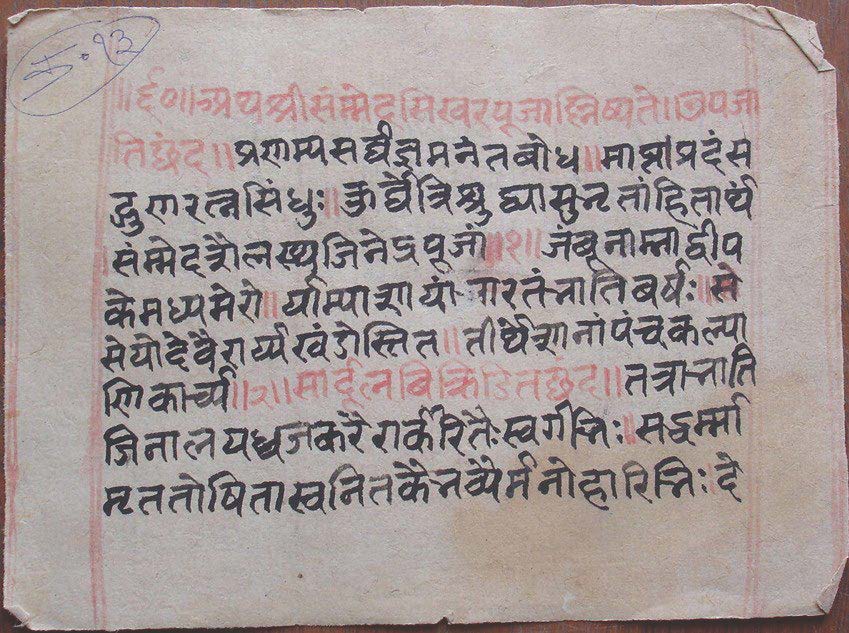 क॰ १३
॥६०॥ अथ श्रीसंम्मेदसिखरपूजा लिष्यते॥ उपजा
तिछंद॥ प्रणम्य सर्वज्ञमनंतबोध॥ माप्तं प्रदं स
द्गुणरत्नसिंधुः॥ कुर्वे त्रिशुद्ध्या सुनृतां हितार्थं
संम्मेदशैलस्थजिनेंद्रपूजां॥१॥ जंबूनाम्नाद्वीप
के मध्यमेरो॥ र्याम्याशायां भारतं भाति बर्षः॥ से
सेयोदेवैरार्य्यखंडोस्तित॥ तीर्थेशानां पंचकल्या
णिकार्च्य॥२॥ सार्दूलबिक्रिडितछंद॥ तत्राभाति
जिनालयध्वजकरैराकारितैः स्वर्गभिः॥ सद्धर्म्मा
मृततोषितास्वनितकैर्नव्यैर्मनोहारिभिः दे